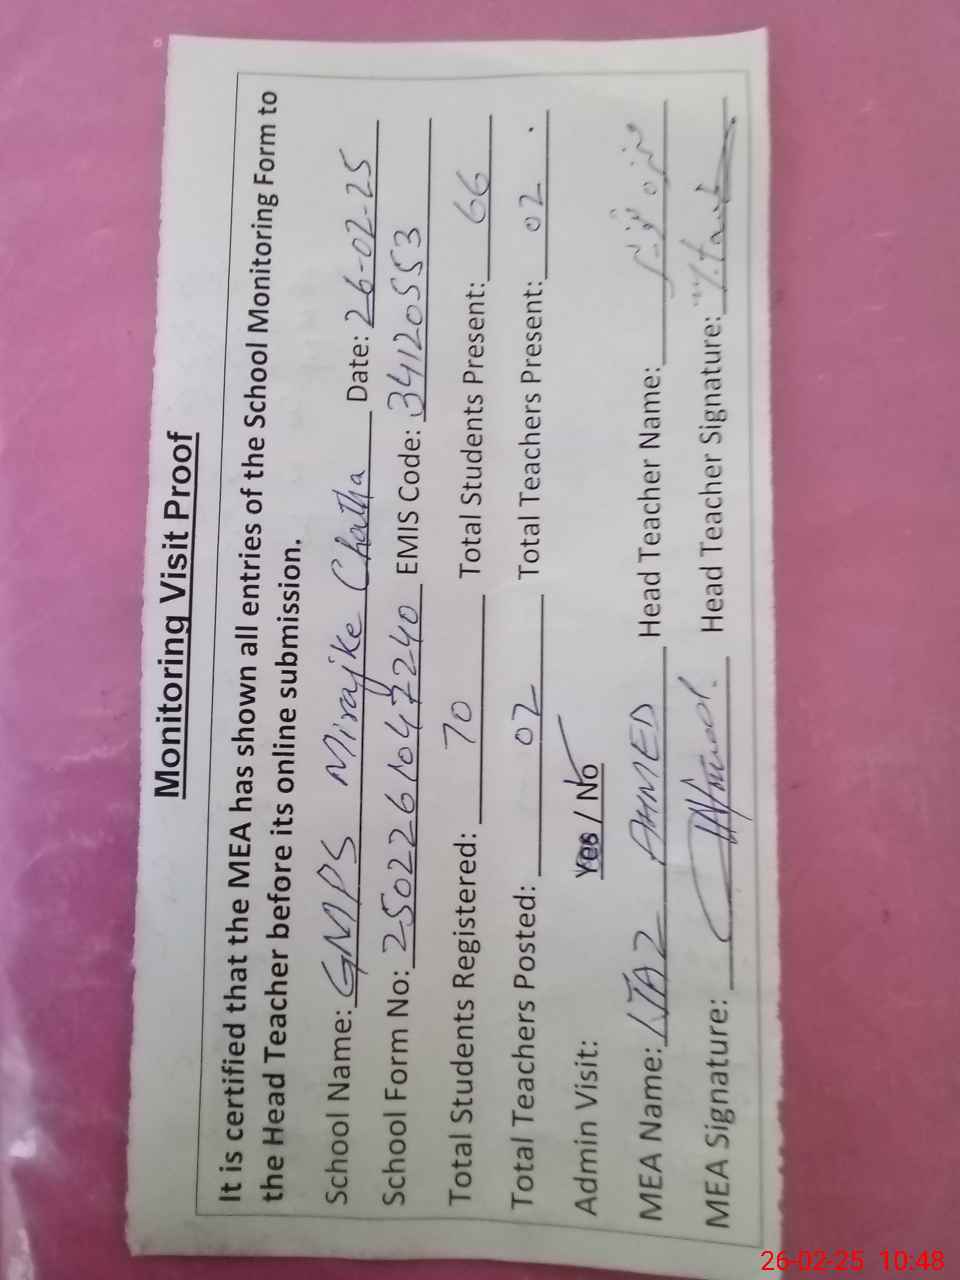 Monitoring Visit Proof
It is certified that the MEA has shown all entries of the School Monitoring Form to
the Head Teacher before its online submission.
School Name: GMPS Mirajke Chatha Date: 26-02-25
School Form No: 2502261047240 EMIS Code: 34120553
Total Students Registered: 70 Total Students Present: 66
Total Teachers Posted: 02 Total Teachers Present: 02
Admin Visit: Yes / No
MEA Name: NJAZ AHMED Head Teacher Name:
MEA Signature: Head Teacher Signature:
26-02-25 10:48